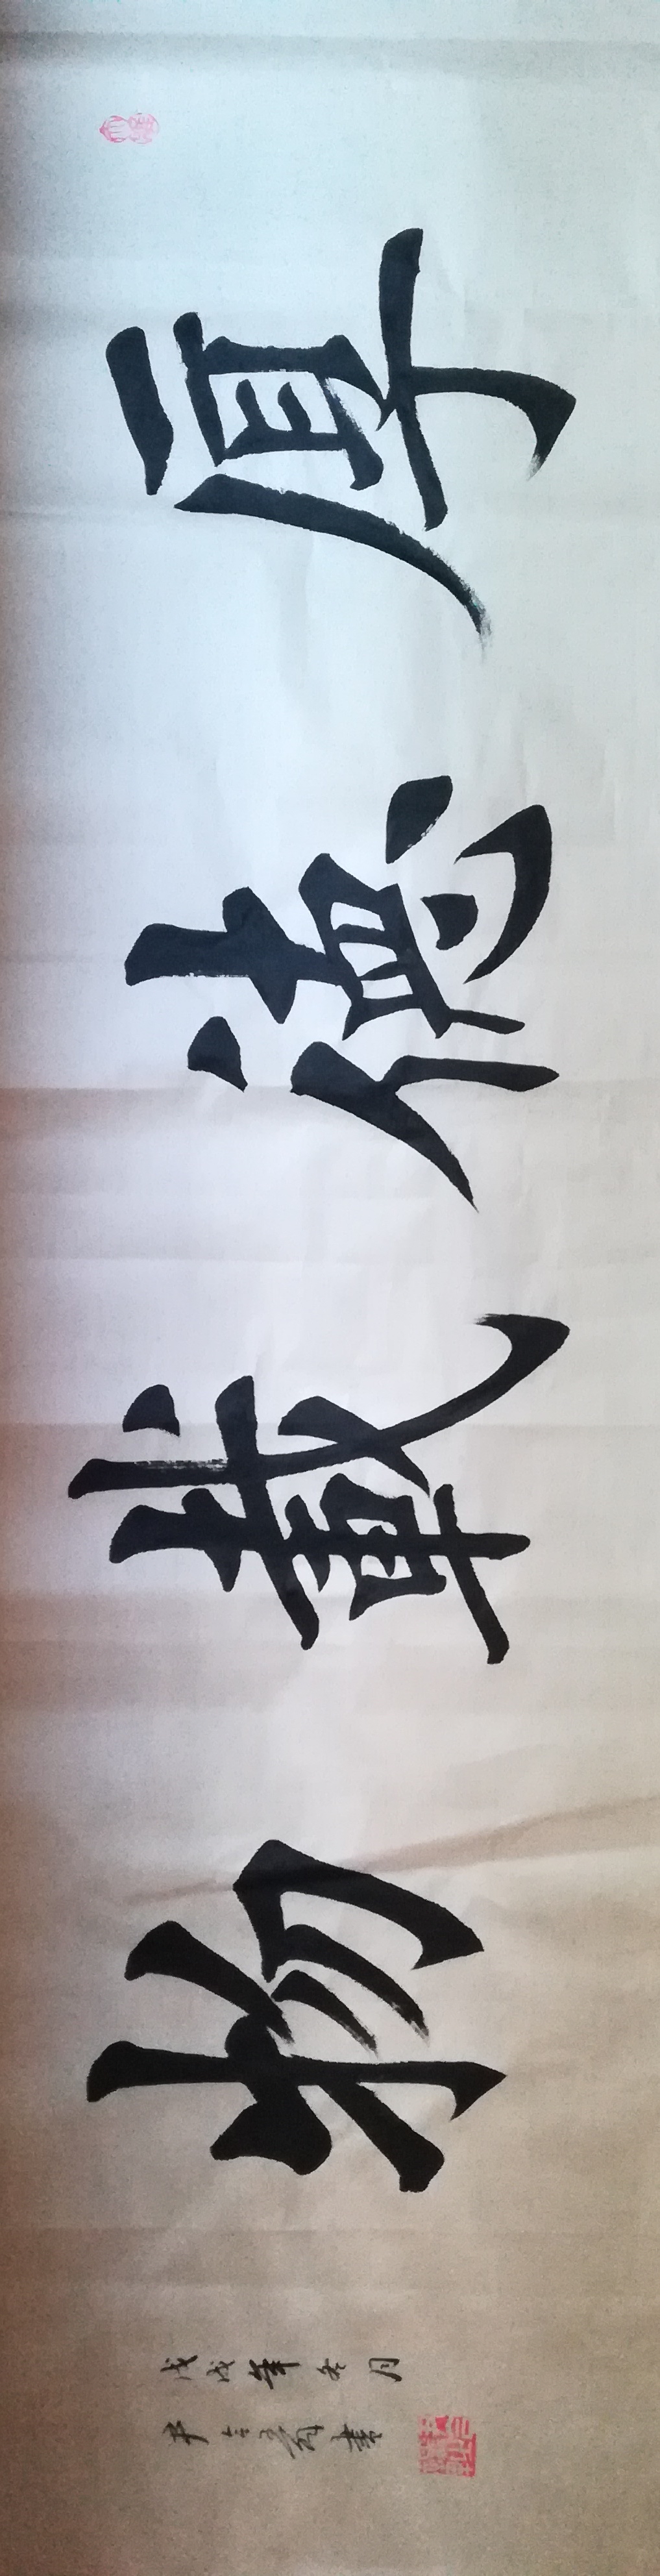 厚德载物
戊戌年冬月